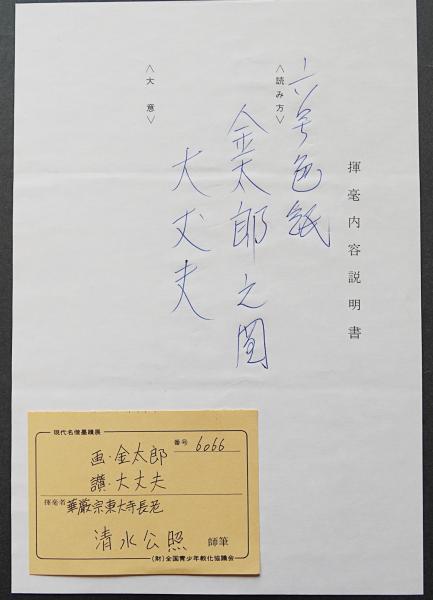 揮毫内容説明書
六号色紙
〈読み方〉
金太郎之図
大丈夫
〈大意〉
現代名僧墨蹟展
番号 6066
画・金太郎
讃・大丈夫
揮毫者 華厳宗東大寺長老
清水公照 師筆
(財)全国青少年教化協議会